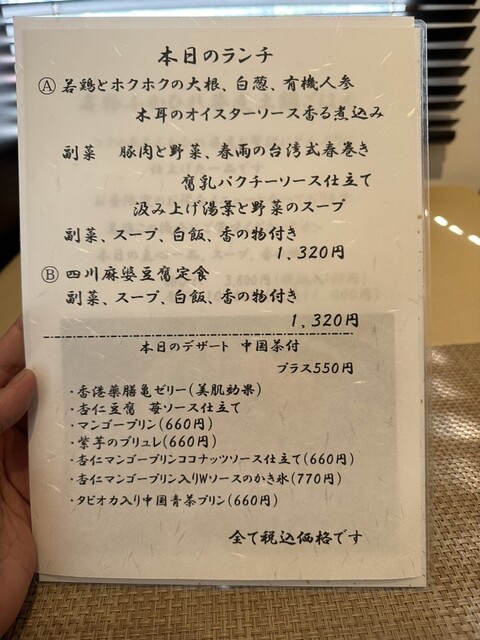 本日のランチ
Ⓐ 若鶏とホクホクの大根、白葱、有機人参
木耳のオイスターソース香る煮込み
副菜 豚肉と野菜、春雨の台湾式春巻き
腐乳パクチーソース仕立て
汲み上げ湯葉と野菜のスープ
副菜、スープ、白飯、香の物付き
1,320円
Ⓑ 四川麻婆豆腐定食
副菜、スープ、白飯、香の物付き
1,320円
本日のデザート 中国茶付
プラス550円
・香港薬膳亀ゼリー(美肌効果)
・杏仁豆腐 苺ソース仕立て
・マンゴープリン(660円)
・紫芋のブリュレ(660円)
・杏仁マンゴープリンココナッツソース仕立て(660円)
・杏仁マンゴープリン入りWソースのかき氷(770円)
・タピオカ入り中国青茶プリン(660円)
全て税込価格です